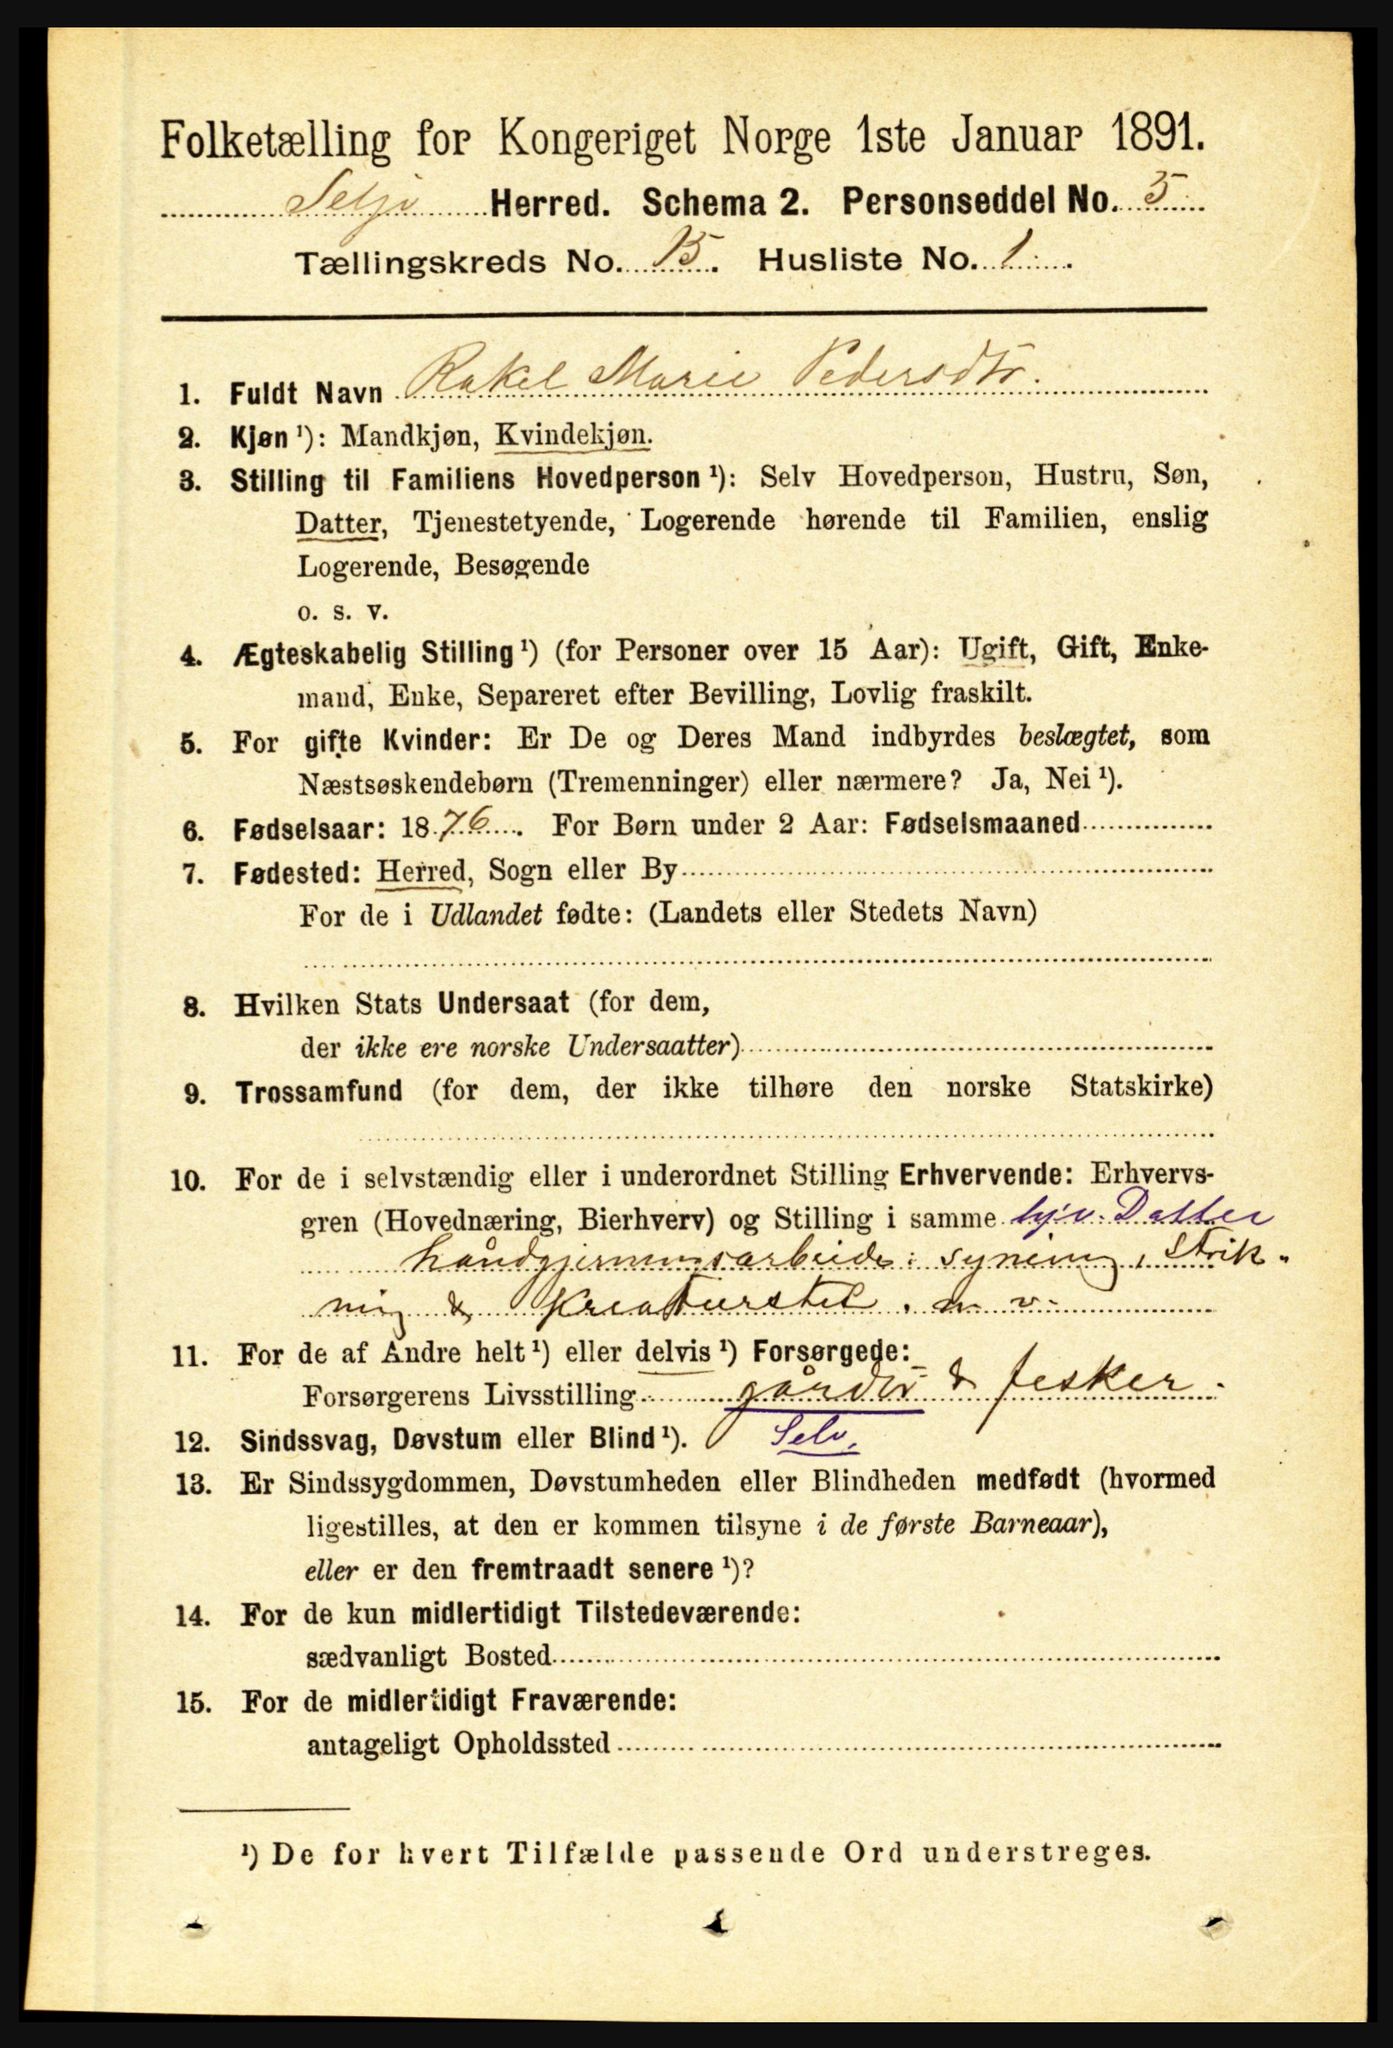 Folketælling for Kongeriget Norge 1ste Januar 1891.
Selje Herred. Schema 2. Personseddel No. 5
Tællingskreds No. 15. Husliste No. 1.
1. Fuldt Navn Rakel Marie Pedersdtr.
2. Kjøn ¹): Mandkjøn, Kvindekjøn.
3. Stilling til Familiens Hovedperson ¹): Selv Hovedperson, Hustru, Søn,
Datter, Tjenestetyende, Logerende hørende til Familien, enslig
Logerende, Besøgende
o. s. v.
4. Ægteskabelig Stilling ¹) (for Personer over 15 Aar): Ugift, Gift, Enke-
mand, Enke, Separeret efter Bevilling, Lovlig fraskilt.
5. For gifte Kvinder: Er De og Deres Mand indbyrdes beslægtet, som
Næstsøskendebørn (Tremenninger) eller nærmere? Ja, Nei ¹).
6. Fødselsaar: 1876. For Børn under 2 Aar: Fødselsmaaned
7. Fødested: Herred, Sogn eller By
For de i Udlandet fødte: (Landets eller Stedets Navn)
8. Hvilken Stats Undersaat (for dem,
der ikke ere norske Undersaatter)
9. Trossamfund (for dem, der ikke tilhøre den norske Statskirke)
10. For de i selvstændig eller i underordnet Stilling Erhvervende: Erhvervs-
gren (Hovednæring, Bierhverv) og Stilling i samme Datter
håndgjerningsarbeide: syning, Strik-
ning & Kreaturstel. m v.
11. For de af Andre helt ¹) eller delvis ¹) Forsørgede:
Forsørgerens Livsstilling gårdbr & fesker.
12. Sindssvag, Døvstum eller Blind ¹). Selv.
13. Er Sindssygdommen, Døvstumheden eller Blindheden medfødt (hvormed
ligestilles, at den er kommen tilsyne i de første Barneaar),
eller er den fremtraadt senere ¹)?
14. For de kun midlertidigt Tilstedeværende:
sædvanligt Bosted
15. For de midlertidigt Fraværende:
antageligt Opholdssted
¹) De for hvert Tilfælde passende Ord understreges.